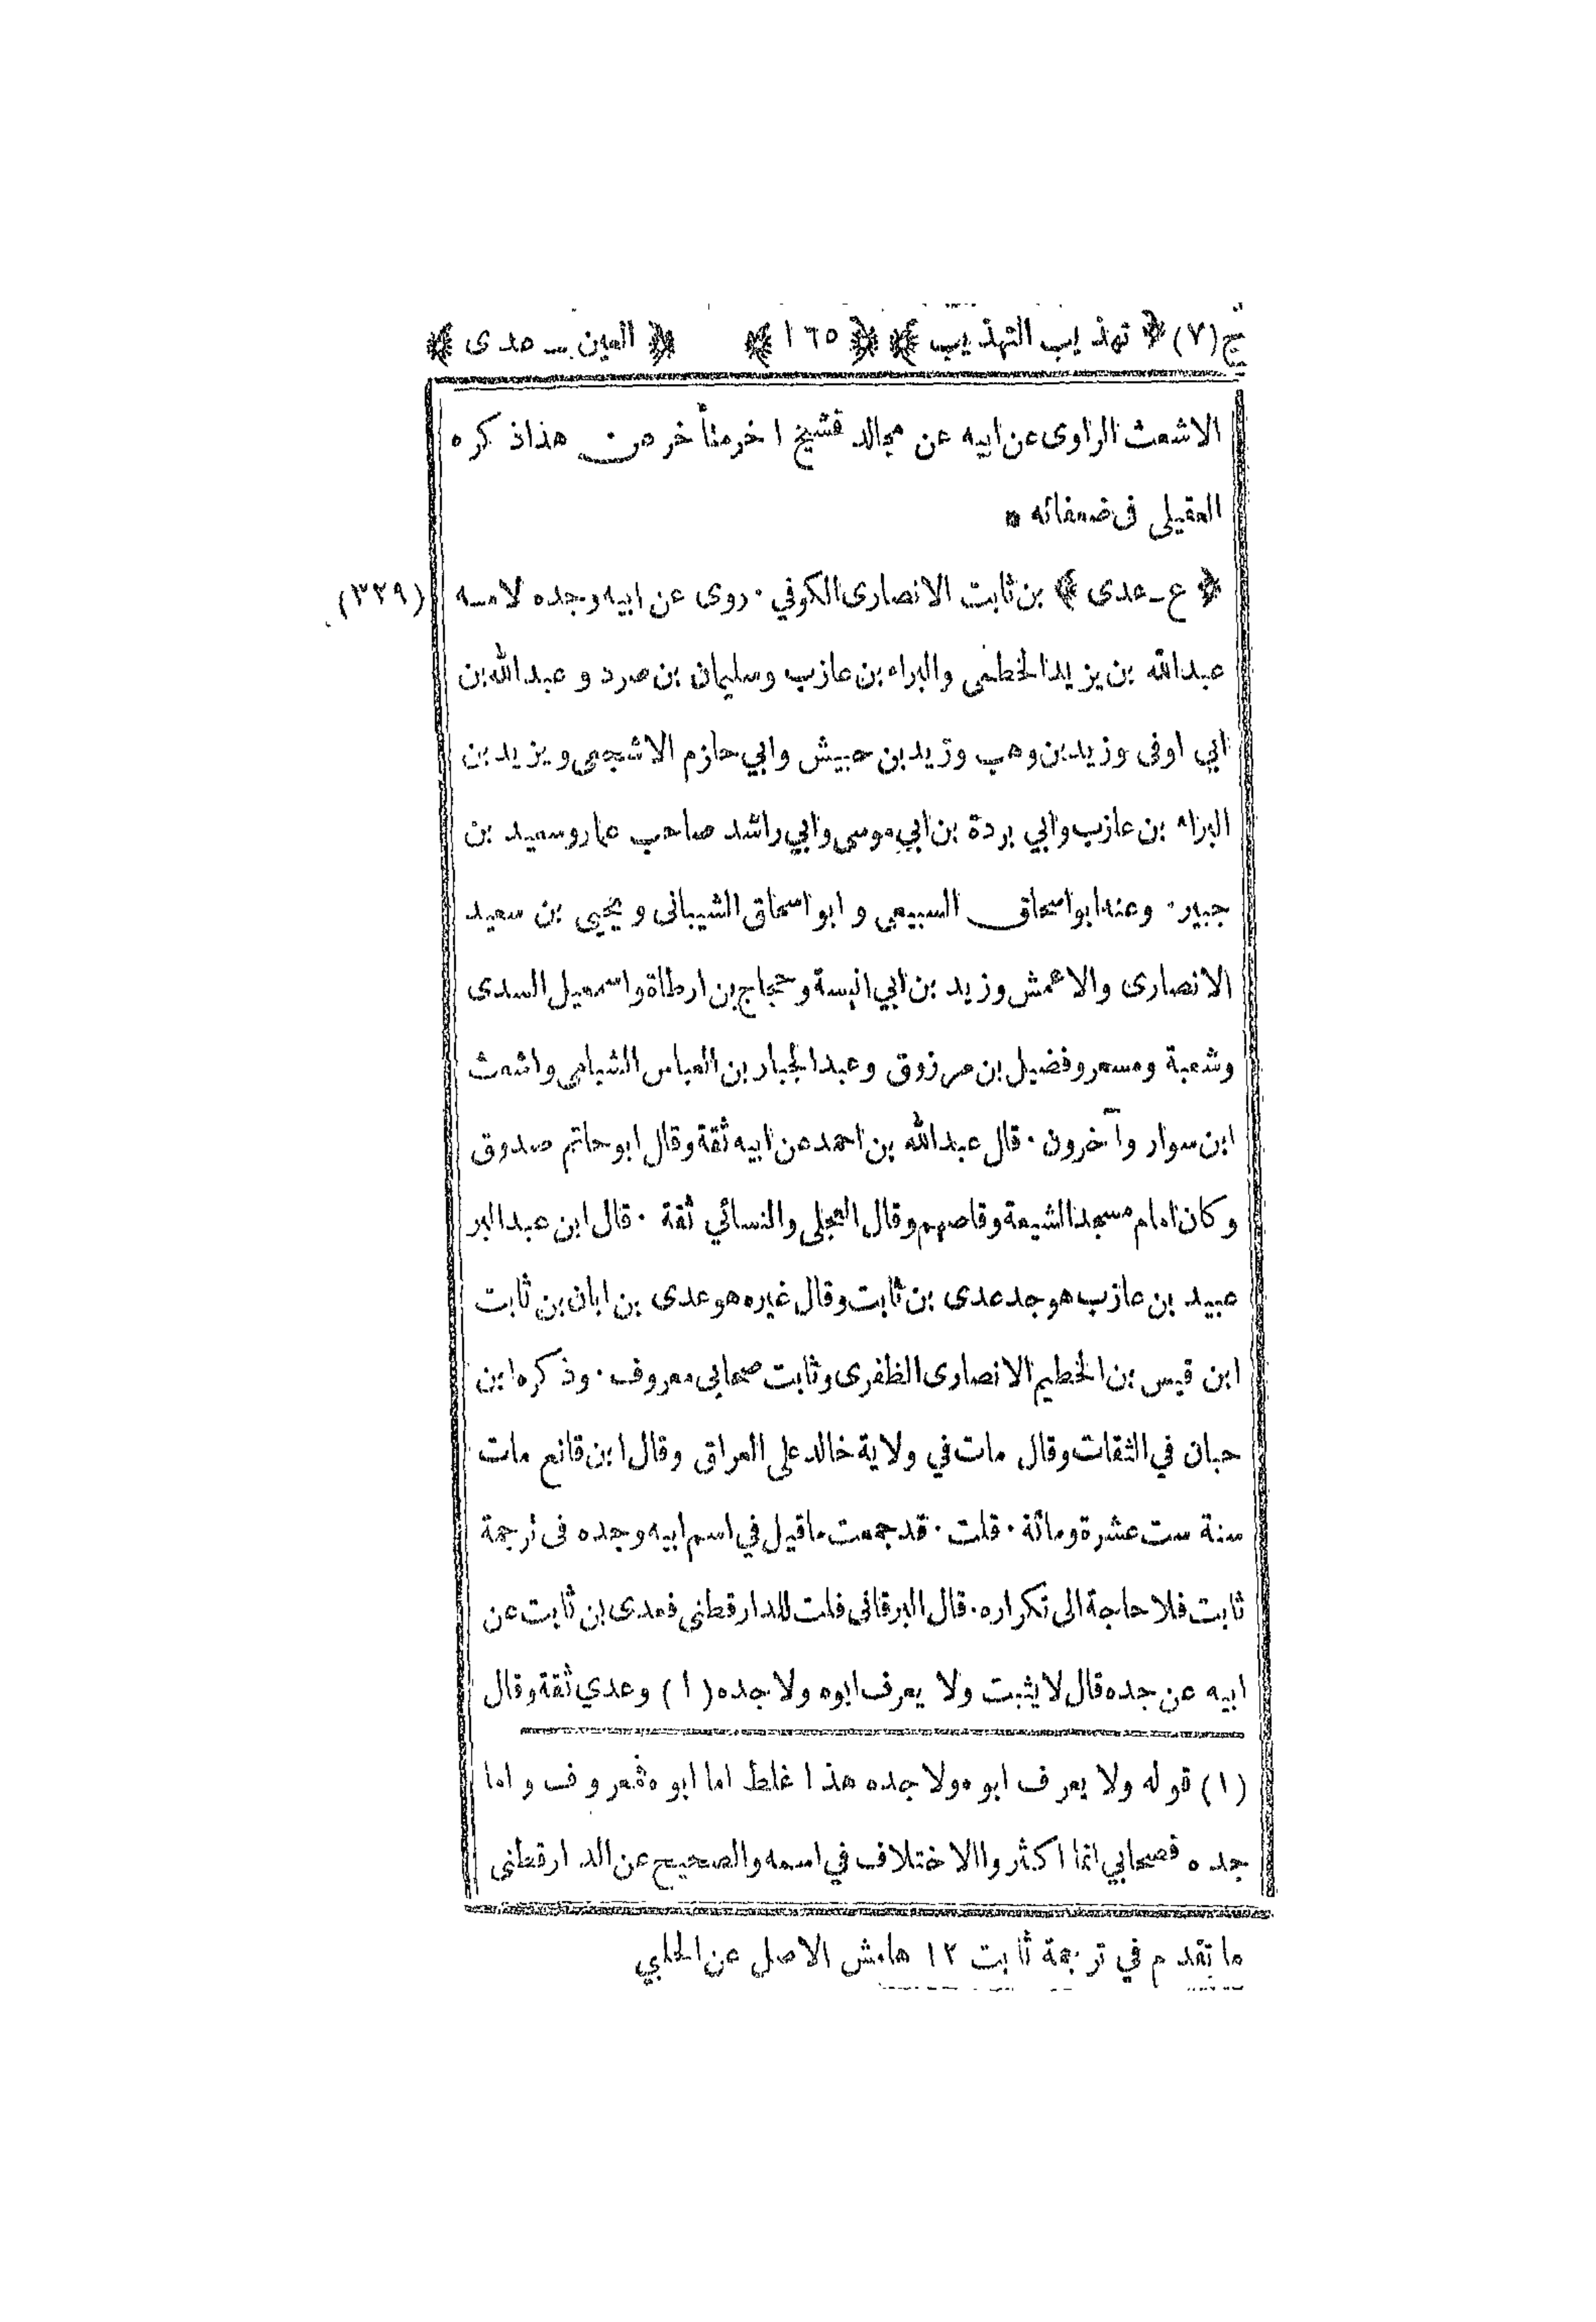 ج(٧) ﴿ تهذيب التهذيب ﴾ ﴿ ١٦٥ ﴾ ﴿ العين ـ عدى ﴾
الاشعث الراوى عن ابيه عن مجالد فشيخ اخر متأخر من هذا ذكره
العقيلى فى ضعفائه *
﴿ ع ـ عدى ﴾ بن ثابت الانصارى الكوفي . روى عن ابيه وجده لامه (٣٢٩)
عبدالله بن يزيد الخطمى والبراء بن عازب وسليمان بن صرد وعبدالله بن
ابي اوفى وزيد بن وهب وزيد بن حبيش وابي حازم الاشجعى ويزيد بن
البراء بن عازب وابي بردة بن ابي موسى وابي راشد صاحب عمار وسعيد بن
جبير . وعنه ابو اسحاق السبيعى و ابو اسحاق الشيبانى ويحيى بن سعيد
الانصارى والاعمش وزيد بن ابي انيسة وحجاج بن ارطاة واسمعيل السدى
وشعبة ومسعر وفضيل بن مرزوق وعبد الجبار بن العباس الشبامى واشعث
ابن سوار وآخرون . قال عبدالله بن احمد عن ابيه ثقة وقال ابوحاتم صدوق
وكان امام مسجد الشيعة وقاصهم وقال العجلى والنسائي ثقة . قال ابن عبد البر
عبيد بن عازب هو جد عدى بن ثابت وقال غيره هو عدى بن ابان بن ثابت
ابن قيس بن الخطيم الانصارى الظفرى وثابت صحابى معروف . وذكره ابن
حبان في الثقات وقال مات في ولاية خالد على العراق وقال ابن قانع مات
سنة ست عشرة ومائة . قلت . قد جمعت ماقيل في اسم ابيه وجده فى ترجمة
ثابت فلا حاجة الى تكراره . قال البرقانى قلت للدارقطنى فعدى بن ثابت عن
ابيه عن جده قال لا يثبت ولا يعرف ابوه ولا جده (١) وعدي ثقة وقال
(١) قوله ولا يعرف ابوه ولا جده هذا غلط اما ابوه فمعروف واما
جده فصحابي انما اكثروا الاختلاف في اسمه والصحيح عن الدارقطنى
ما تقدم في ترجمة ثابت ١٢ هامش الاصل عن الحلبي